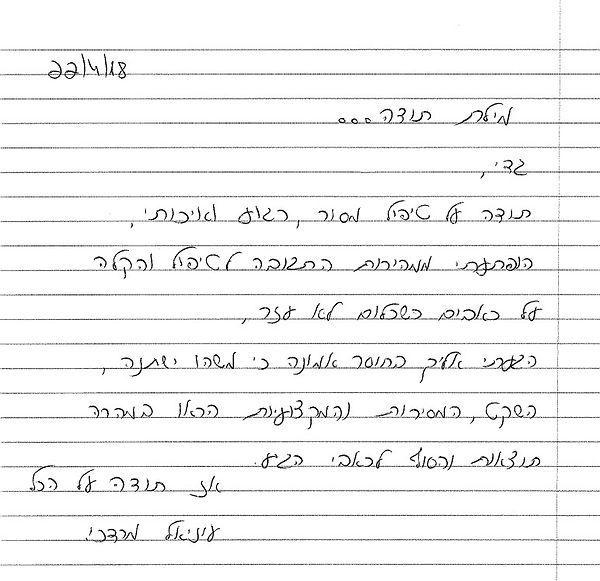 22/4/18
מילת תודה...
גדי,
תודה על טיפול מסור, רגוע ואיכותי,
הופתעתי ממהירות התגובה לטיפול והקלה
על כאבים כשכלום לא עזר,
הגעתי אליך בחוסר אמונה כי משהו ישתנה,
השקט, המסירות והמקצועיות הראו במהרה
תוצאות והסוף לכאבי הגיע.
אז תודה על הכל
עיניאל מרדכי.